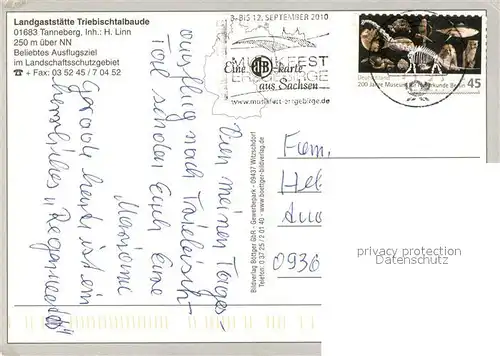 Landgaststätte Triebischtalbaude
01683 Tanneberg, Inh.: H. Linn
250 m über NN
Beliebtes Ausflugsziel
im Landschaftsschutzgebiet
☎ + Fax: 03 52 45 / 7 04 52
BIS 12. SEPTEMBER 2010
MUSIKFEST
ERZGEBIRGE
Eine BTB-karte
aus Sachsen
www.musikfest-erzgebirge.de
Deutschland
200 Jahre Museum für Naturkunde Berlin 45
Von meinem Tages-
ausflug nach Triebisch-
Tal senden Euch Eine
Marianne
Gerade heute ist ein
herrliches "Regenwetter"
Bildverlag Böttger GbR · Gewerbepark · 09437 Witzschdorf
Telefon: 0 37 25 / 2 01 40 · www.boettger-bildverlag.de
Fam.
Hel
0936
privacy protection
(Datenschutz)